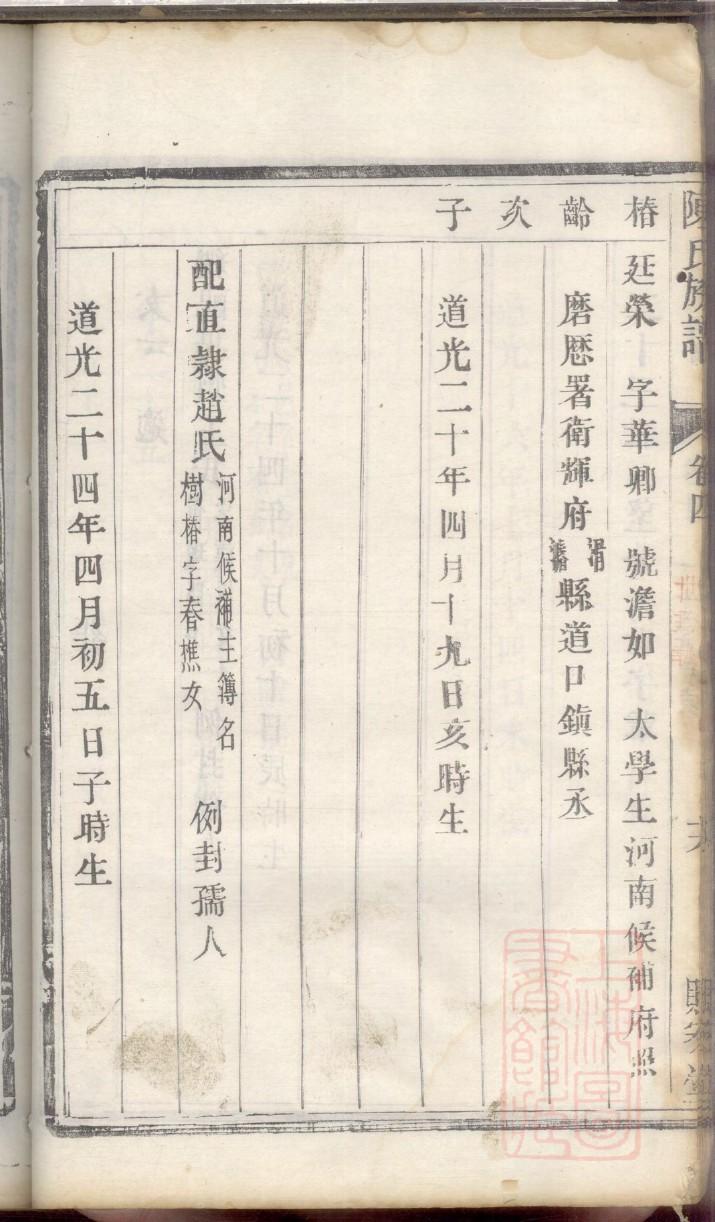 陳氏族譜
卷四
椿齡次子
廷榮 字華卿 號澹如 太學生河南候補府照
磨歷署衛輝府滑濬縣道口鎮縣丞
道光二十年四月十九日亥時生
配直隸趙氏河南候補主簿名
樹椿字春樵女 例封孺人
道光二十四年四月初五日子時生
上海圖書館藏